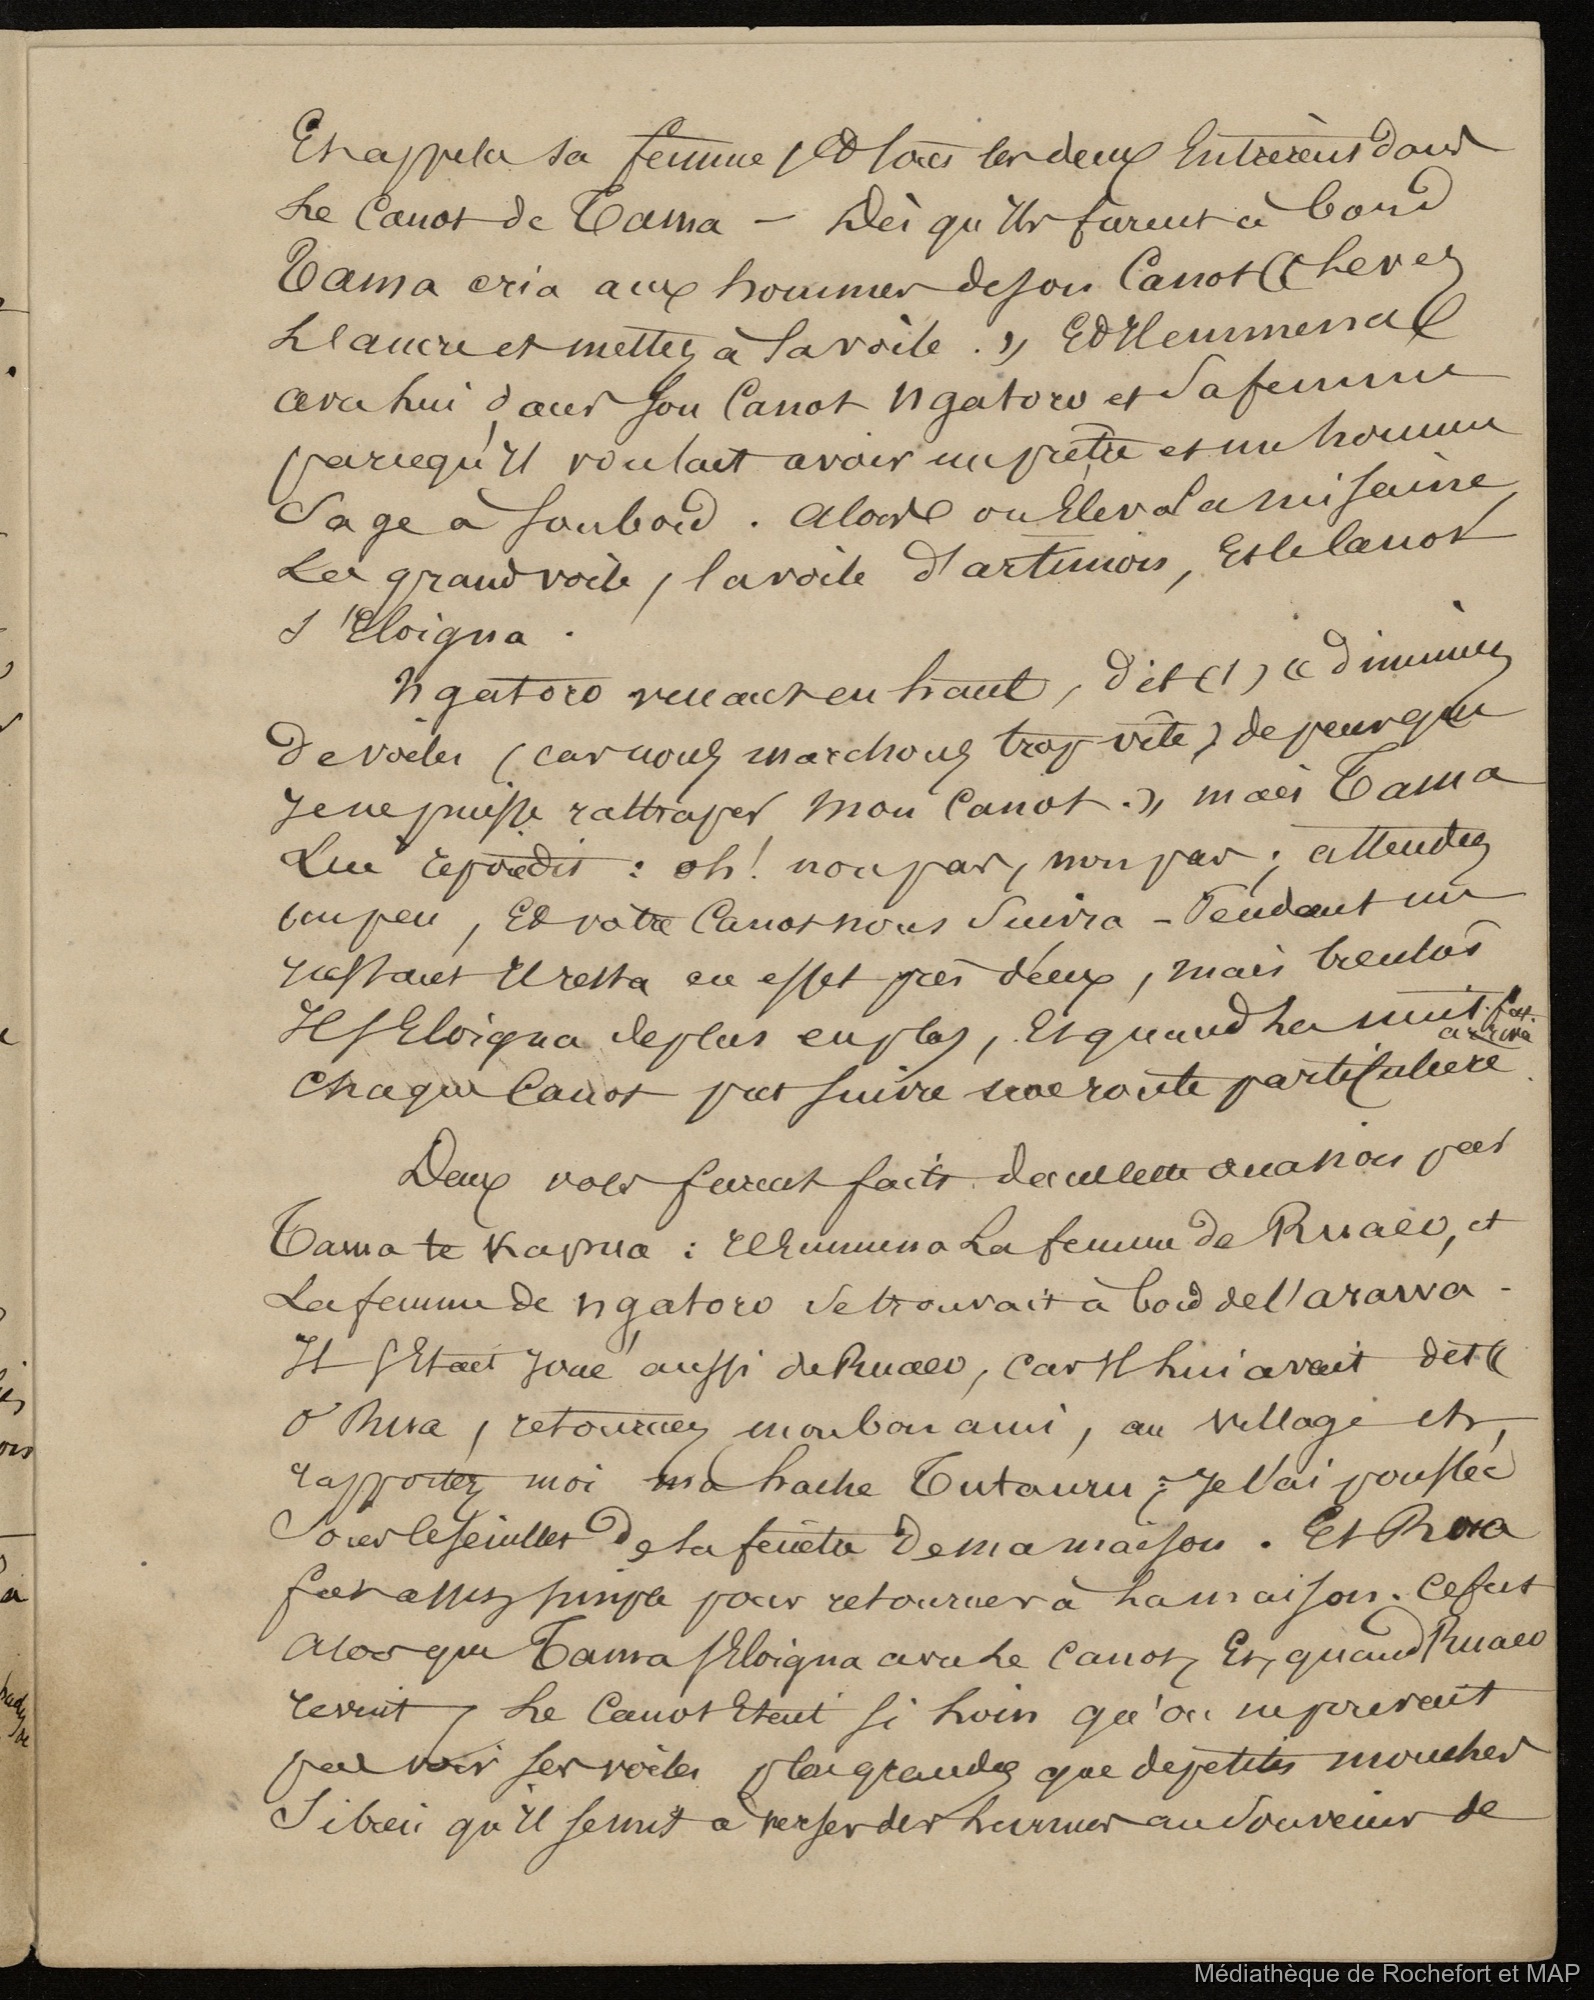 Et appela sa femme, Et tous les deux Entrèrent dans
Le Canot de Tama — Dès qu'Ils furent à bord
Tama cria aux hommes de son Canot « Levez
L'ancre et mettez à la voile. » Et Il emmena
avec lui dans son Canot Ngatoro et sa femme
parcequ'Il voulait avoir un prêtre et un homme
Sage à son bord. Alors on Eleva La misaine,
La grand voile, la voile d'artimon, Et le Canot
s'Eloigna.
Ngatoro venant en haut, dit (1) « diminuez
De voiles (car nous marchons trop vite) de peur que
Je ne puisse rattraper mon Canot. » mais Tama
Lui répondit : oh! non pas, non pas ; attendez
un peu, Et votre Canot nous Suivra – Pendant un
Instant Il resta en effet près d'eux, mais bientôt
Il s'Eloigna de plus en plus, Et quand La nuit fut
arrivée
Chaque Canot put suivre une route particulière.
Deux vols furent faits dans cette occasion par
Tama te Kapua : Il Emmena La femme de Ruaeo, et
La femme de Ngatoro se trouvait à bord de l'arawa -
Il s'Etait Joué aussi de Ruaeo, car Il lui avait dit «
O Rua, retournez mon bon ami, au village et,
rapportez moi ma hache Tutauru ; Je l'ai poussée
Sous le seuillet De La fenêtre De ma maison. Et Rua
fut assez simple pour retourner à La maison. Ce fut
Alors que Tama s'Eloigna avec Le Canot, Et, quand Ruaeo
revint, Le Canot Etait si Loin qu'on ne pouvait
pas voir ses voiles plus grandes que de petites mouches
Si bien qu'Il se mit à verser des Larmes au Souvenir de
Médiathèque de Rochefort et MAP